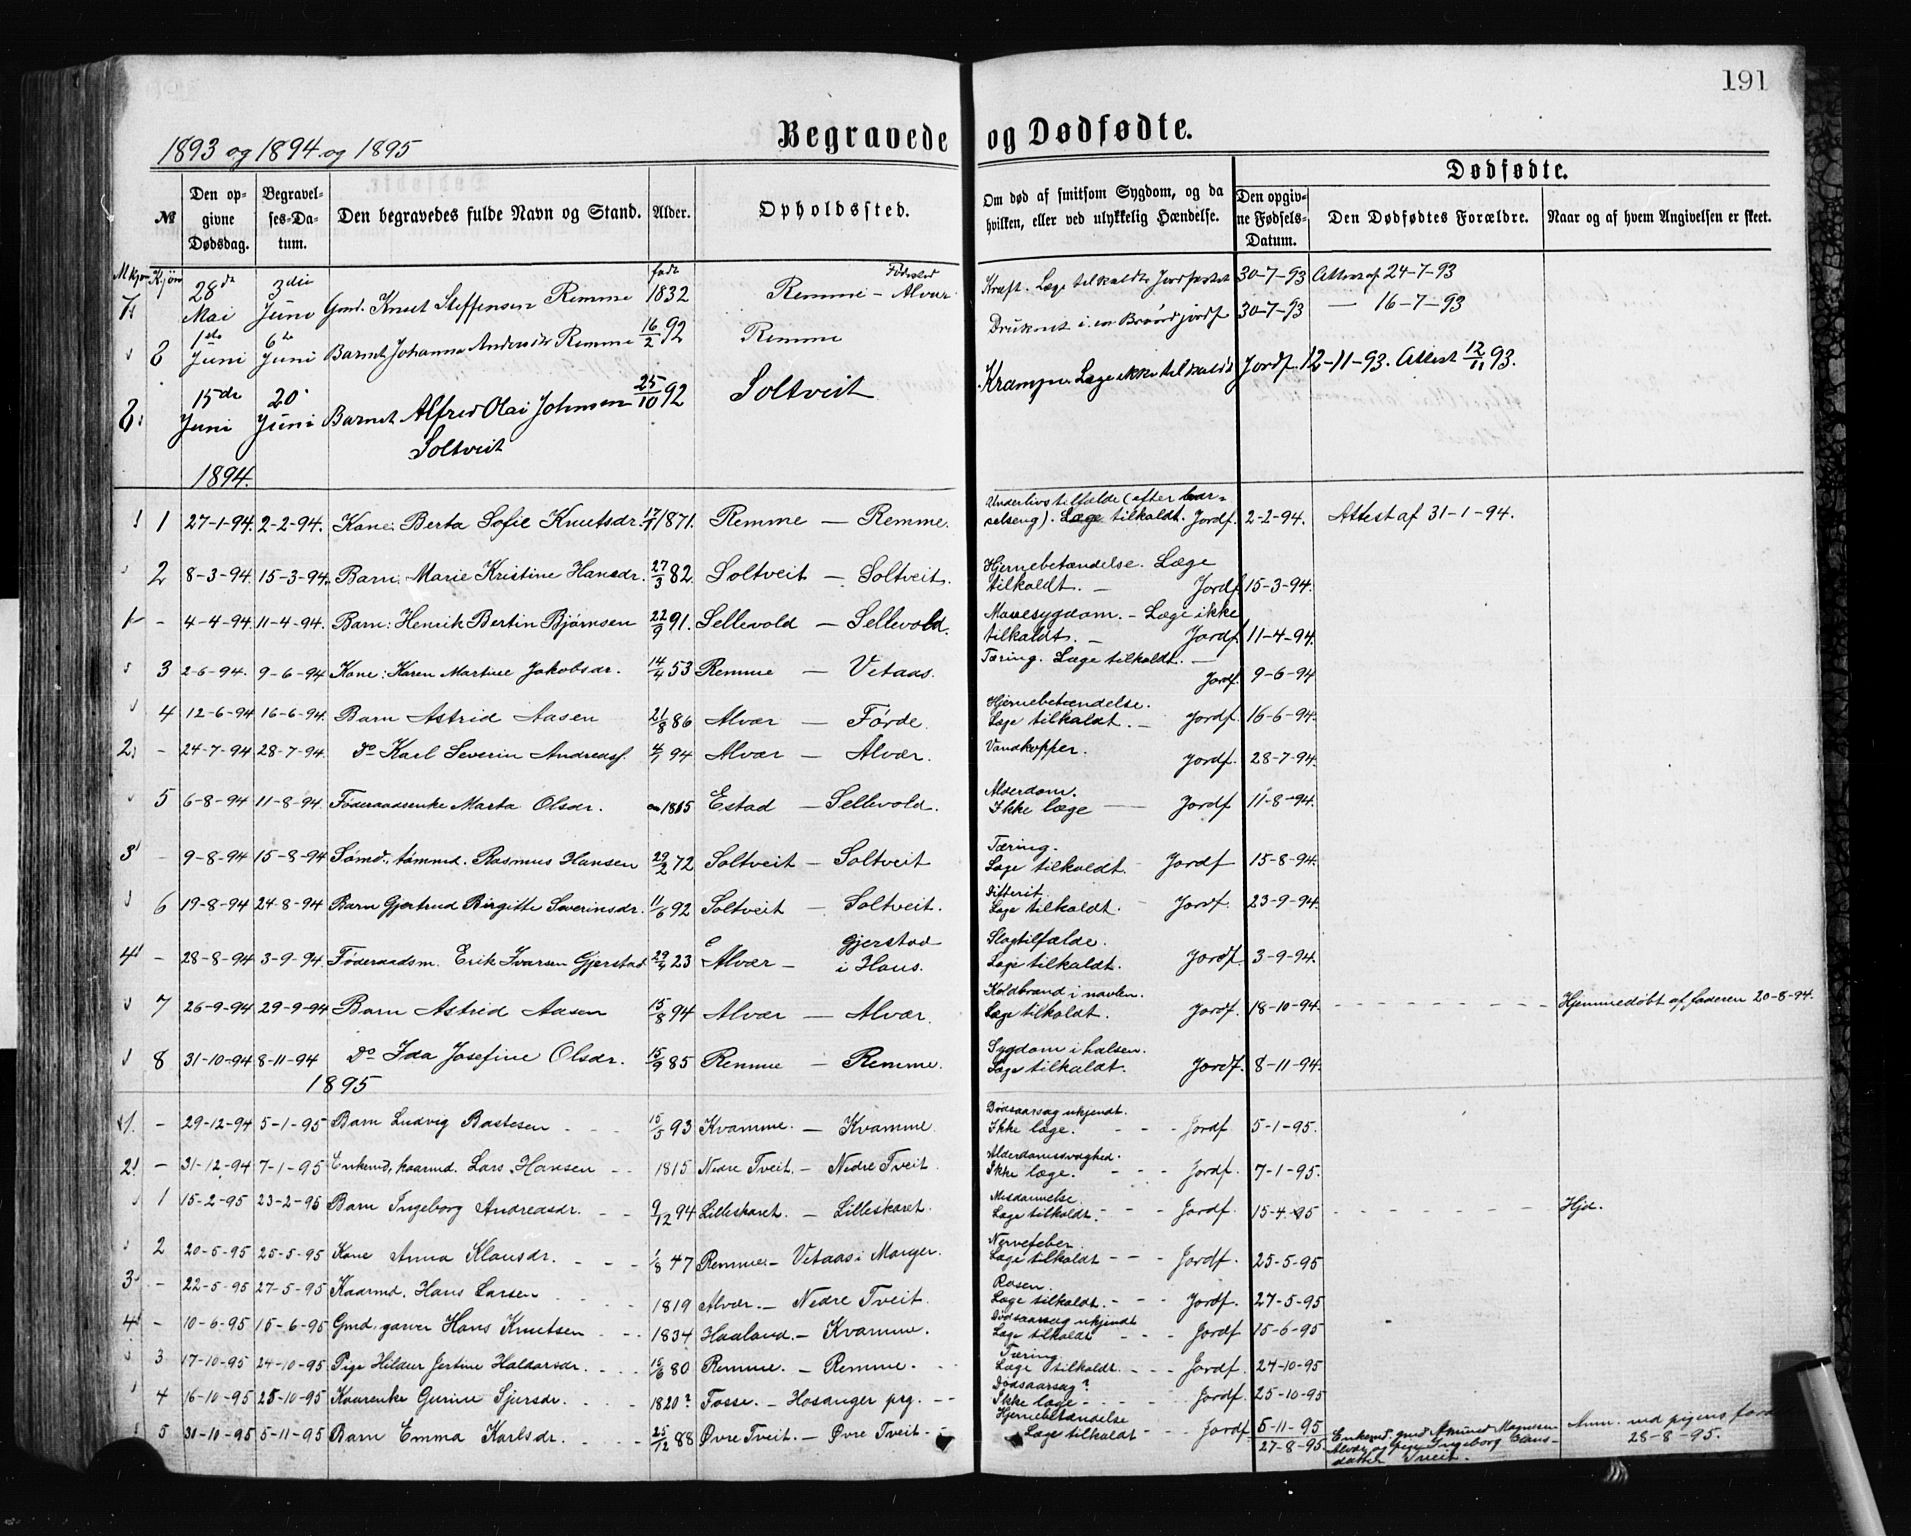 191
1893 og 1894 og 1895
Begravede og Dødfødte.
Dødfødte.
№
Den opgivne Dødsdag.
Begravelses-Datum.
Den begravedes fulde Navn og Stand.
Alder.
Opholdssted.
Om død af smitsom Sygdom, og da hvilken, eller ved ulykkelig Hændelse.
Den opgivne Fødsels-Datum.
Den Dødfødtes Forældre.
Naar og af hvem Angivelsen er skeet.
Mkjøn Kjøn
28de Mai 3die Juni Gmd. Knut Steffensen Remme født 1832 Remme - Fødested Alvær Kræft. Læge tilkaldt. Jordfæstet 30-7-93 Attest af 24-7-93
8 1ste Juni 6te Juni Barnet Johanna Andersdr Remme 16/2 92 Remme Druknet i en Brønd jordf 30-7-93 — 16-7-93
8. 15de Juni 20 Juni Barnet Alfred Olai Johnsen Soltveit 25/10 92 Soltveit Krampe. Læge ikke tilkaldt Jordf. 12-11-93. Attest 12/11 93.
1894.
1 27-1-94. 2-2-94. Kone: Berta Sofie Knutsdr. 17/1 1871. Remme — Remme. Underlivstilfælde (efter barselseng). Læge tilkaldt. Jordf. 2-2-94. Attest af 31-1-94.
2 8-3-94. 15-3-94. Barn: Marie Kristine Hansdr. 27/3 82. Soltveit — Soltveit. Hjernebetændelse. Læge tilkaldt. — Jordf 15-3-94.
1 - 4-4-94. 11-4-94. Barn: Henrik Bertin Bjørnsen 22/9 91. Sellevold — Sellevold. Mavesygdom. - Læge ikke tilkaldt. — Jordf 11-4-94.
3 2-6-94. 9-6-94 Kone: Karen Martine Jakobsdr. 14/4 53 Remme — Vetaas. Tæring. Læge tilkaldt. — Jordf. 9-6-94
4 12-6-94 16-6-94. Barn Astrid Aasen 21/8 86 Alvær — Førde. Hjernebetændelse. Læge tilkaldt. — Jordf. 16-6-94.
2. - 24-7-94 28-7-94. Do Karl Severin Andreasf. 94 Alvær — Alvær. Vandkopper. Jordf. 28-7-94.
5 6-8-94 11-8-94. Føderaadsenke Marta Olsdr. 1815 Estad — Sellevold. Alderdom. Ikke læge — Jordf 11-8-94.
3 - 9-8-94 15-8-94 Sømd., tømmd. Rasmus Hansen 29/2 72 Soltveit — Soltveit Tæring. Læge tilkaldt. - Jordf 15-8-94.
6 19-8-94 24-8-94 Barn Gjertrud Birgitte Severinsdr. 11/6 92 Soltveit — Soltveit. Difterit. Læge tilkaldt. - Jordf. 23-9-94.
4 - 28-8-94 3-9-94. Føderaadsm. Erik Ivarsen Gjerstad 29/4 23 Alvær — Gjerstad i Haus. Slagtilfælde. Læge tilkaldt. Jordf. 3-9-94.
7 26-9-94 29-9-94 Barn Astrid Aasen 15/8 94 Alvær — Alvær. Koldbrand i navlen. Læge tilkaldt. Jordf. 18-10-94. Hjemmedøbt af faderen 20-8-94.
8 31-10-94 8-11-94 Do Ida Josefine Olsdr. 15/9 85 Remme — Remme. Sygdom i halsen. Læge tilkaldt. Jordf. 8-11-94.
1895
1. - 29-12-94 5-1-95 Barn Ludvig Bastesen 15/5 93 Kvamme. — Kvamme. Dødsaarsag ukjendt. Ikke læge. - - - Jordf 5-1-95.
2. - 31-12-94 7-1-95 Enkemd, kaarmd. Lars Hansen 1815 Nedre Tveit. - Nedre Tveit. Alderdomssvaghed. Ikke læge. - - - Jordf. 7-1-95.
1 15-2-95 23-2-95 Barn Ingeborg Andreasdr. 9/12 94 Lilleskaret. - Lilleskaret. Misdannelse. Læge tilkaldt. - Jordf. 15-4-95 Hjd.
2 20-5-95 25-5-95 Kone Anna Klausdr. 1/8 47 Remme. - Vetaas i Manger. Nervefeber. Læge tilkaldt - - - Jordf. 25-5-95
3 - 22-5-95 27-5-95 Kaarmd. Hans Larsen 1819 Alvær. - Nedre Tveit. Rosen. Læge tilkaldt. - - Jordf. 27-5-95
4 - 10-6-95 15-6-95 Gmd, garver Hans Knutsen 1834 Haaland. - Kvamme. Dødsaarsag ukjendt Læge tilkaldt - - Jordf 15-6-95
3 17-10-95 24-10-95 Pige Hildur Jertine Haldorsdr. 15/6 80 Remme. - Remme. Tæring Læge tilkaldt. - - Jordf. 24-10-95
4 16-10-95 25-10-95 Kaarenke Gurine Sjursdr. 1820? Fosse. - Hosanger prg. Dødsaarsag? Ikke læge - - - Jordf. 25-10-95
5 31-10-95 5-11-95 Barn Emma Karlsdr. 25/12 88 Øvre Tveit. - Øvre Tveit Hjernebetændelse Læge tilkaldt - - Jordf 5-11-95
27-8-95 Enkemd. gmd Amund Magnesen Alvær og Pige Ingeborg Clausdatter Tveit. Anm. ved pigens fader 28-8-95.